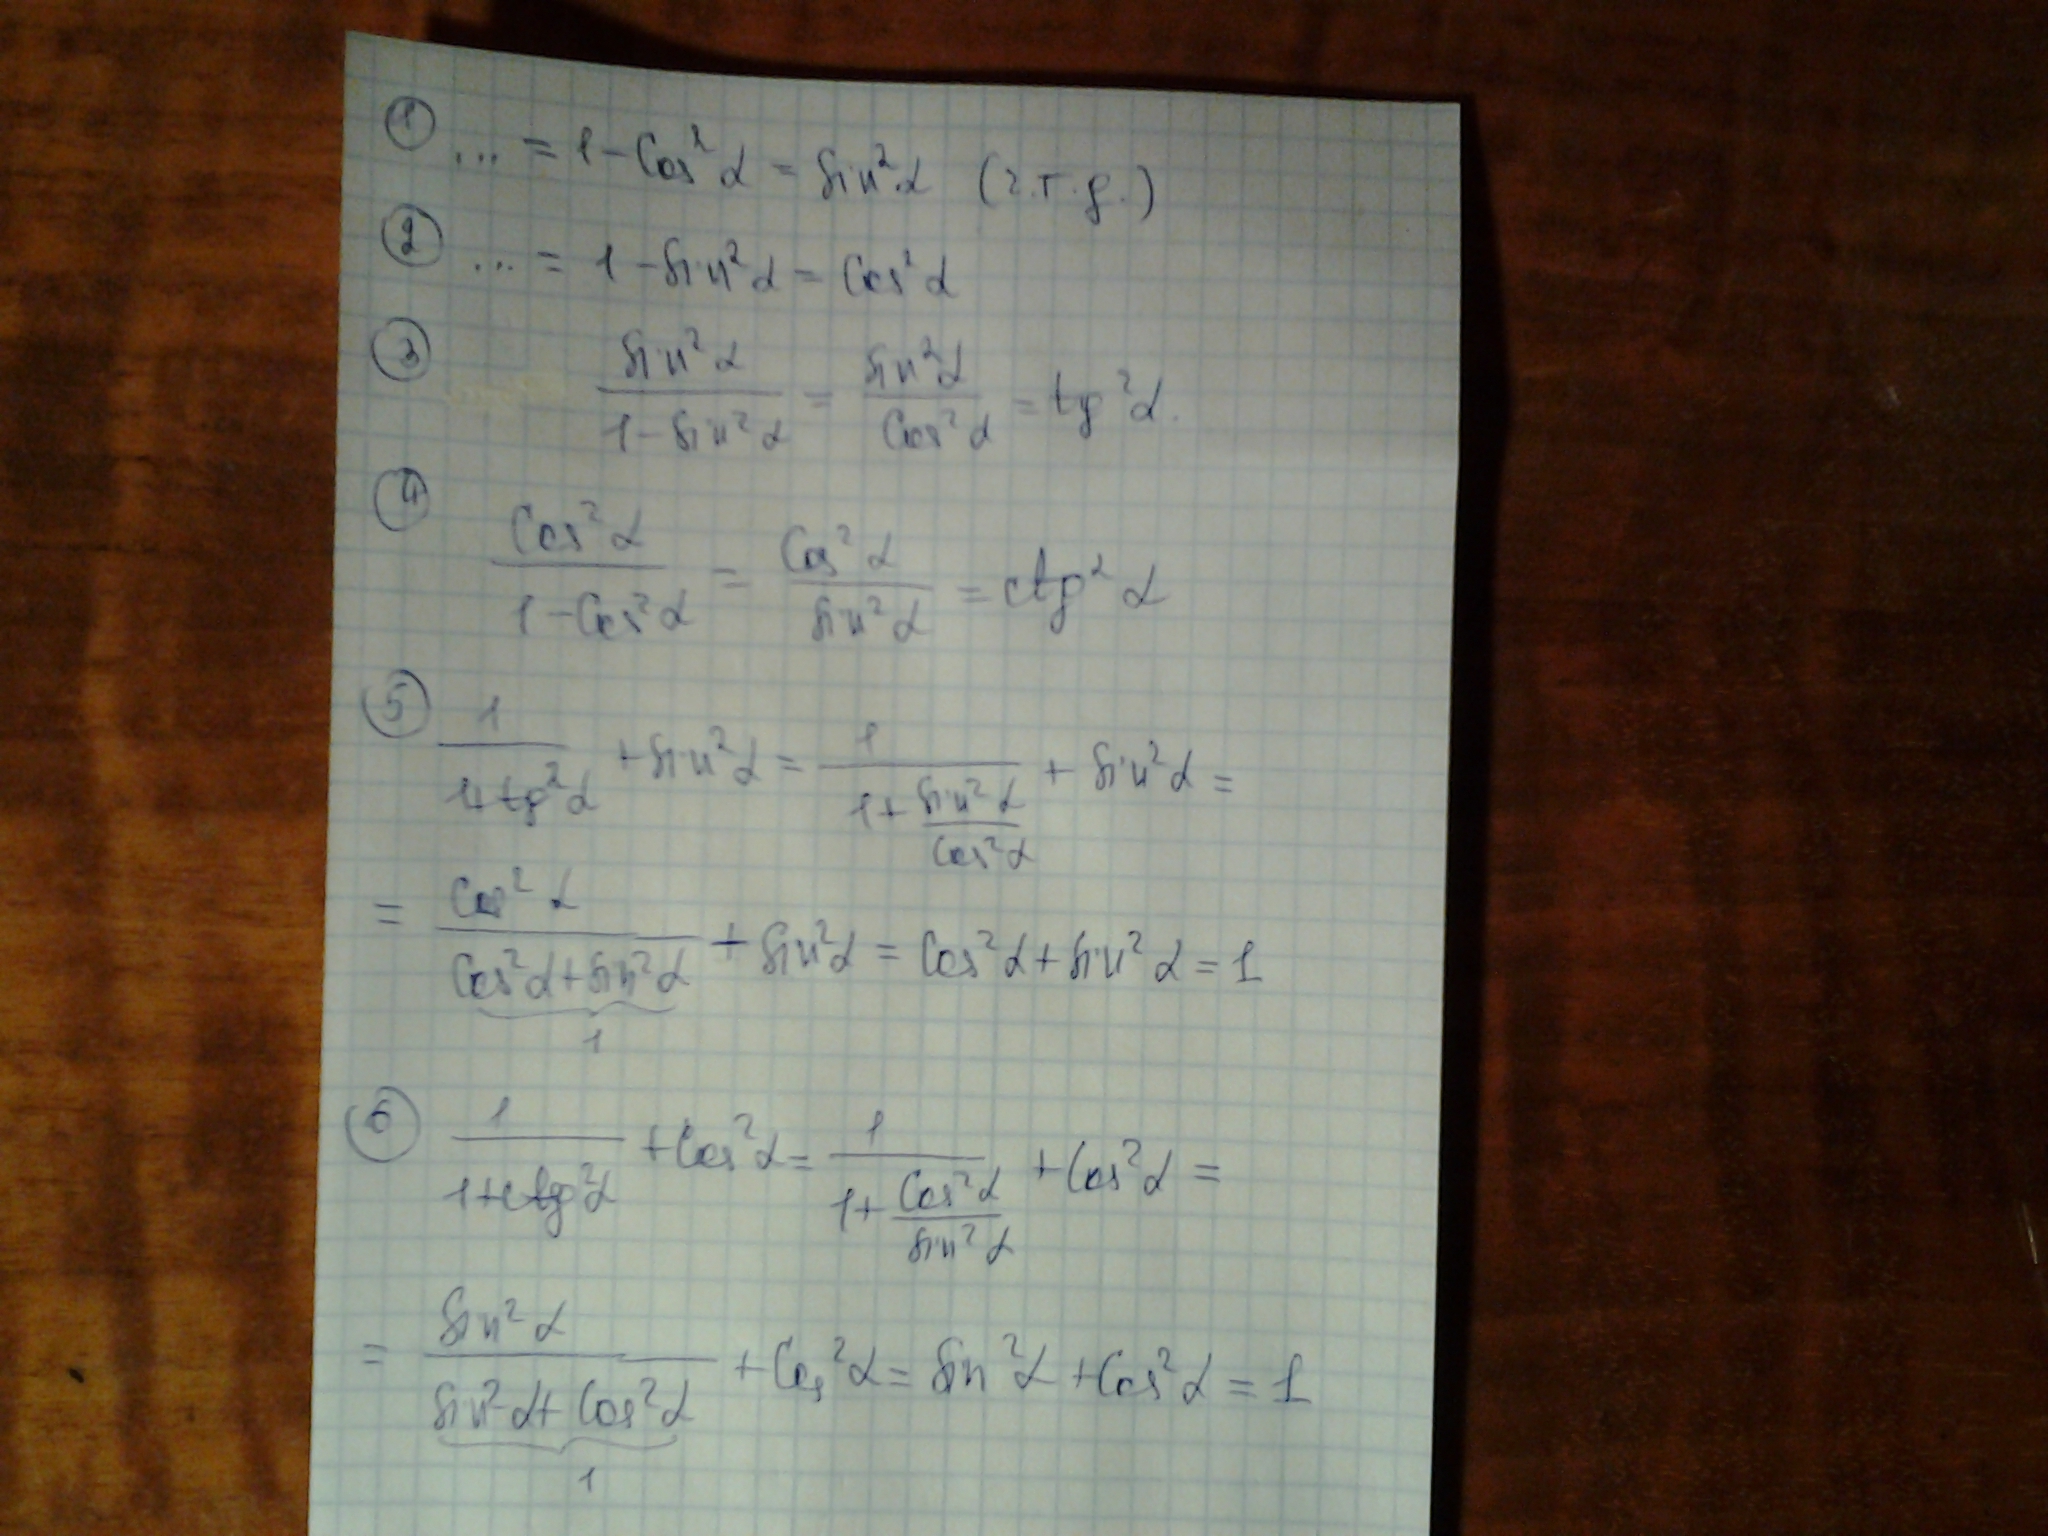 ① ... = 1 - Cos²α = Sin²α (ч.т.д.)
② ... = 1 - Sin²α = Cos²α
③ Sin²α / (1 - Sin²α) = Sin²α / Cos²α = tg²α.
④ Cos²α / (1 - Cos²α) = Cos²α / Sin²α = ctg²α
⑤ 1 / (1+tg²α) + Sin²α = 1 / (1 + Sin²α / Cos²α) + Sin²α =
= Cos²α / (Cos²α + Sin²α) + Sin²α = Cos²α + Sin²α = 1
1
⑥ 1 / (1+ctg²α) + Cos²α = 1 / (1 + Cos²α / Sin²α) + Cos²α =
= Sin²α / (Sin²α + Cos²α) + Cos²α = Sin²α + Cos²α = 1
1